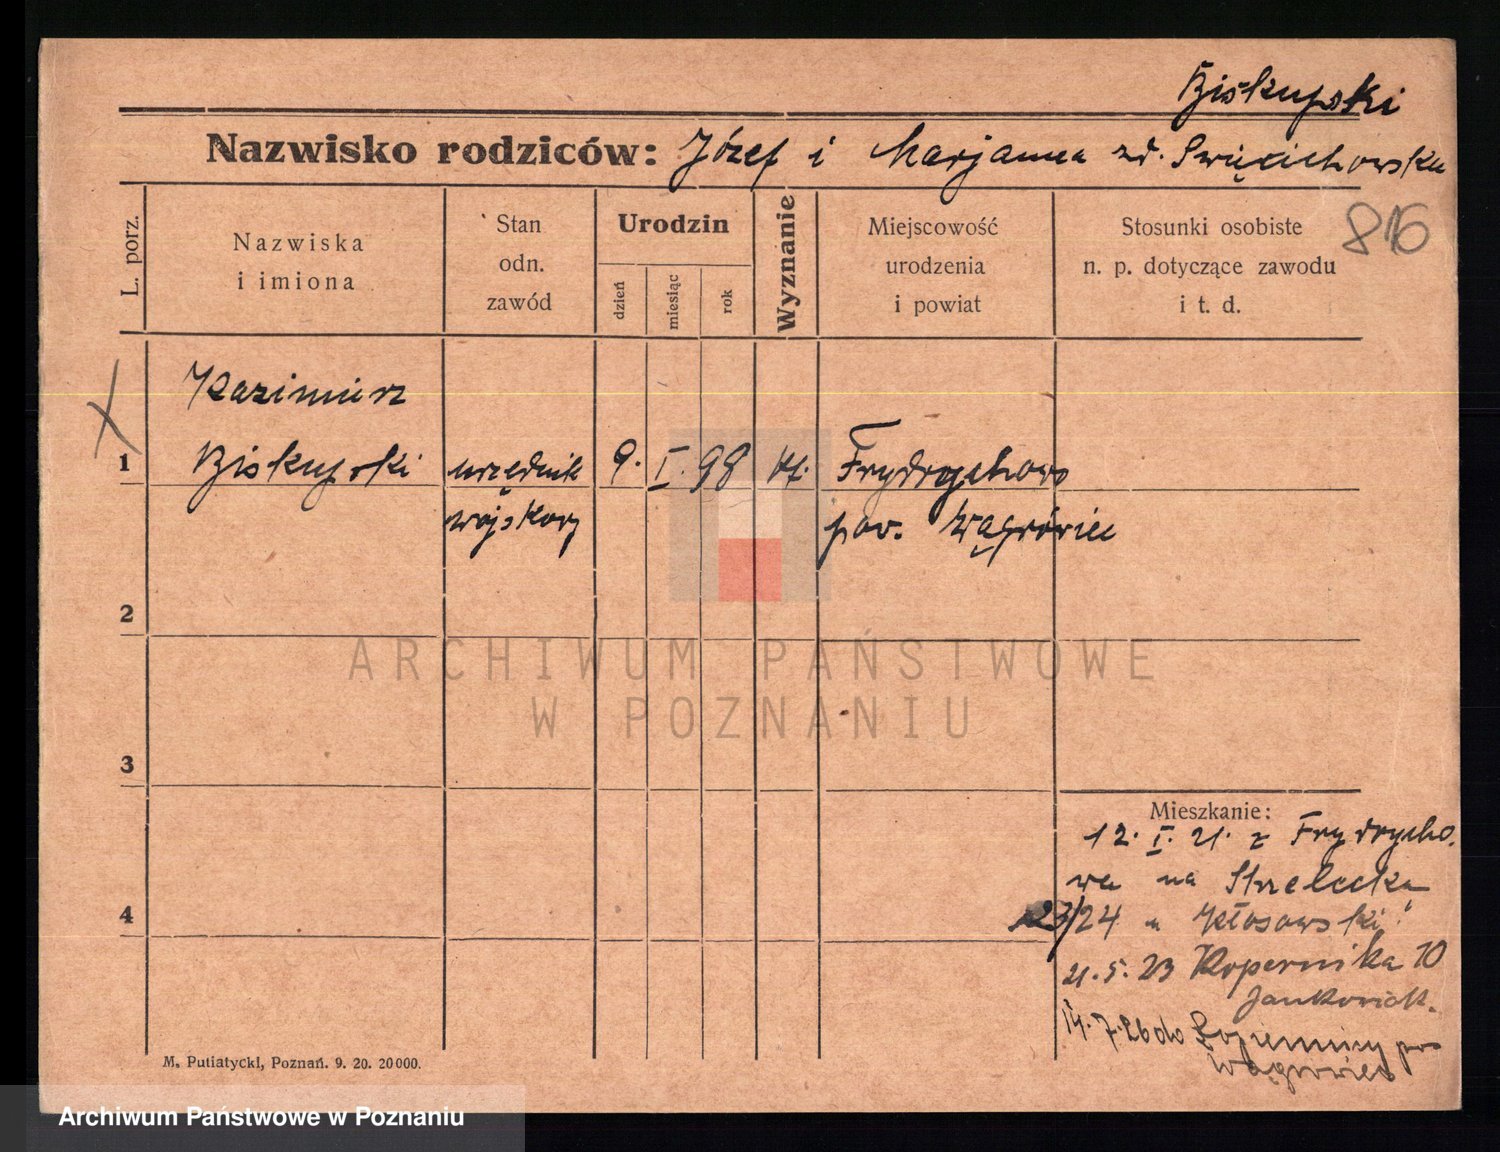 Biskupski
Nazwisko rodziców: Józef i Marjanna zd. Święcichowska
816
L. porz.
Nazwiska
i imiona
Stan
odn.
zawód
Urodzin
dzień
miesiąc
rok
Wyznanie
Miejscowość
urodzenia
i powiat
Stosunki osobiste
n. p. dotyczące zawodu
i t. d.
Kazimierz
1 Biskupski urzędnik 9. I. 98 kt. Frydrychowo
wojskowy pow. Wągrówiec
2
3
4
Mieszkanie:
12. I. 21. z Frydrycho.
wa na Strzelecka
23/24 u Kłosowski
21. 5. 23 Kopernika 10
Jankowiak.
14. 7. 26 do pow
Wągrówiec
M. Putiatycki, Poznań. 9. 20. 20000.
ARCHIWUM PAŃSTWOWE
W POZNANIU
Archiwum Państwowe w Poznaniu